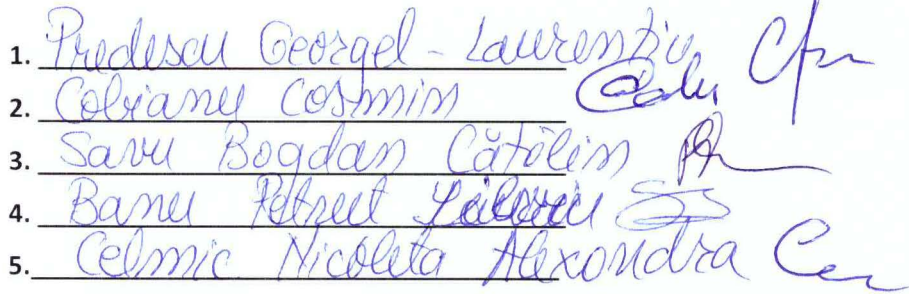 1. Predescu Georgel - Laurențiu
2. Cobianu Cosmin
3. Savu Bogdan Cătălin
4. Banu Petrut
5. Celmic Nicoleta Alexandra